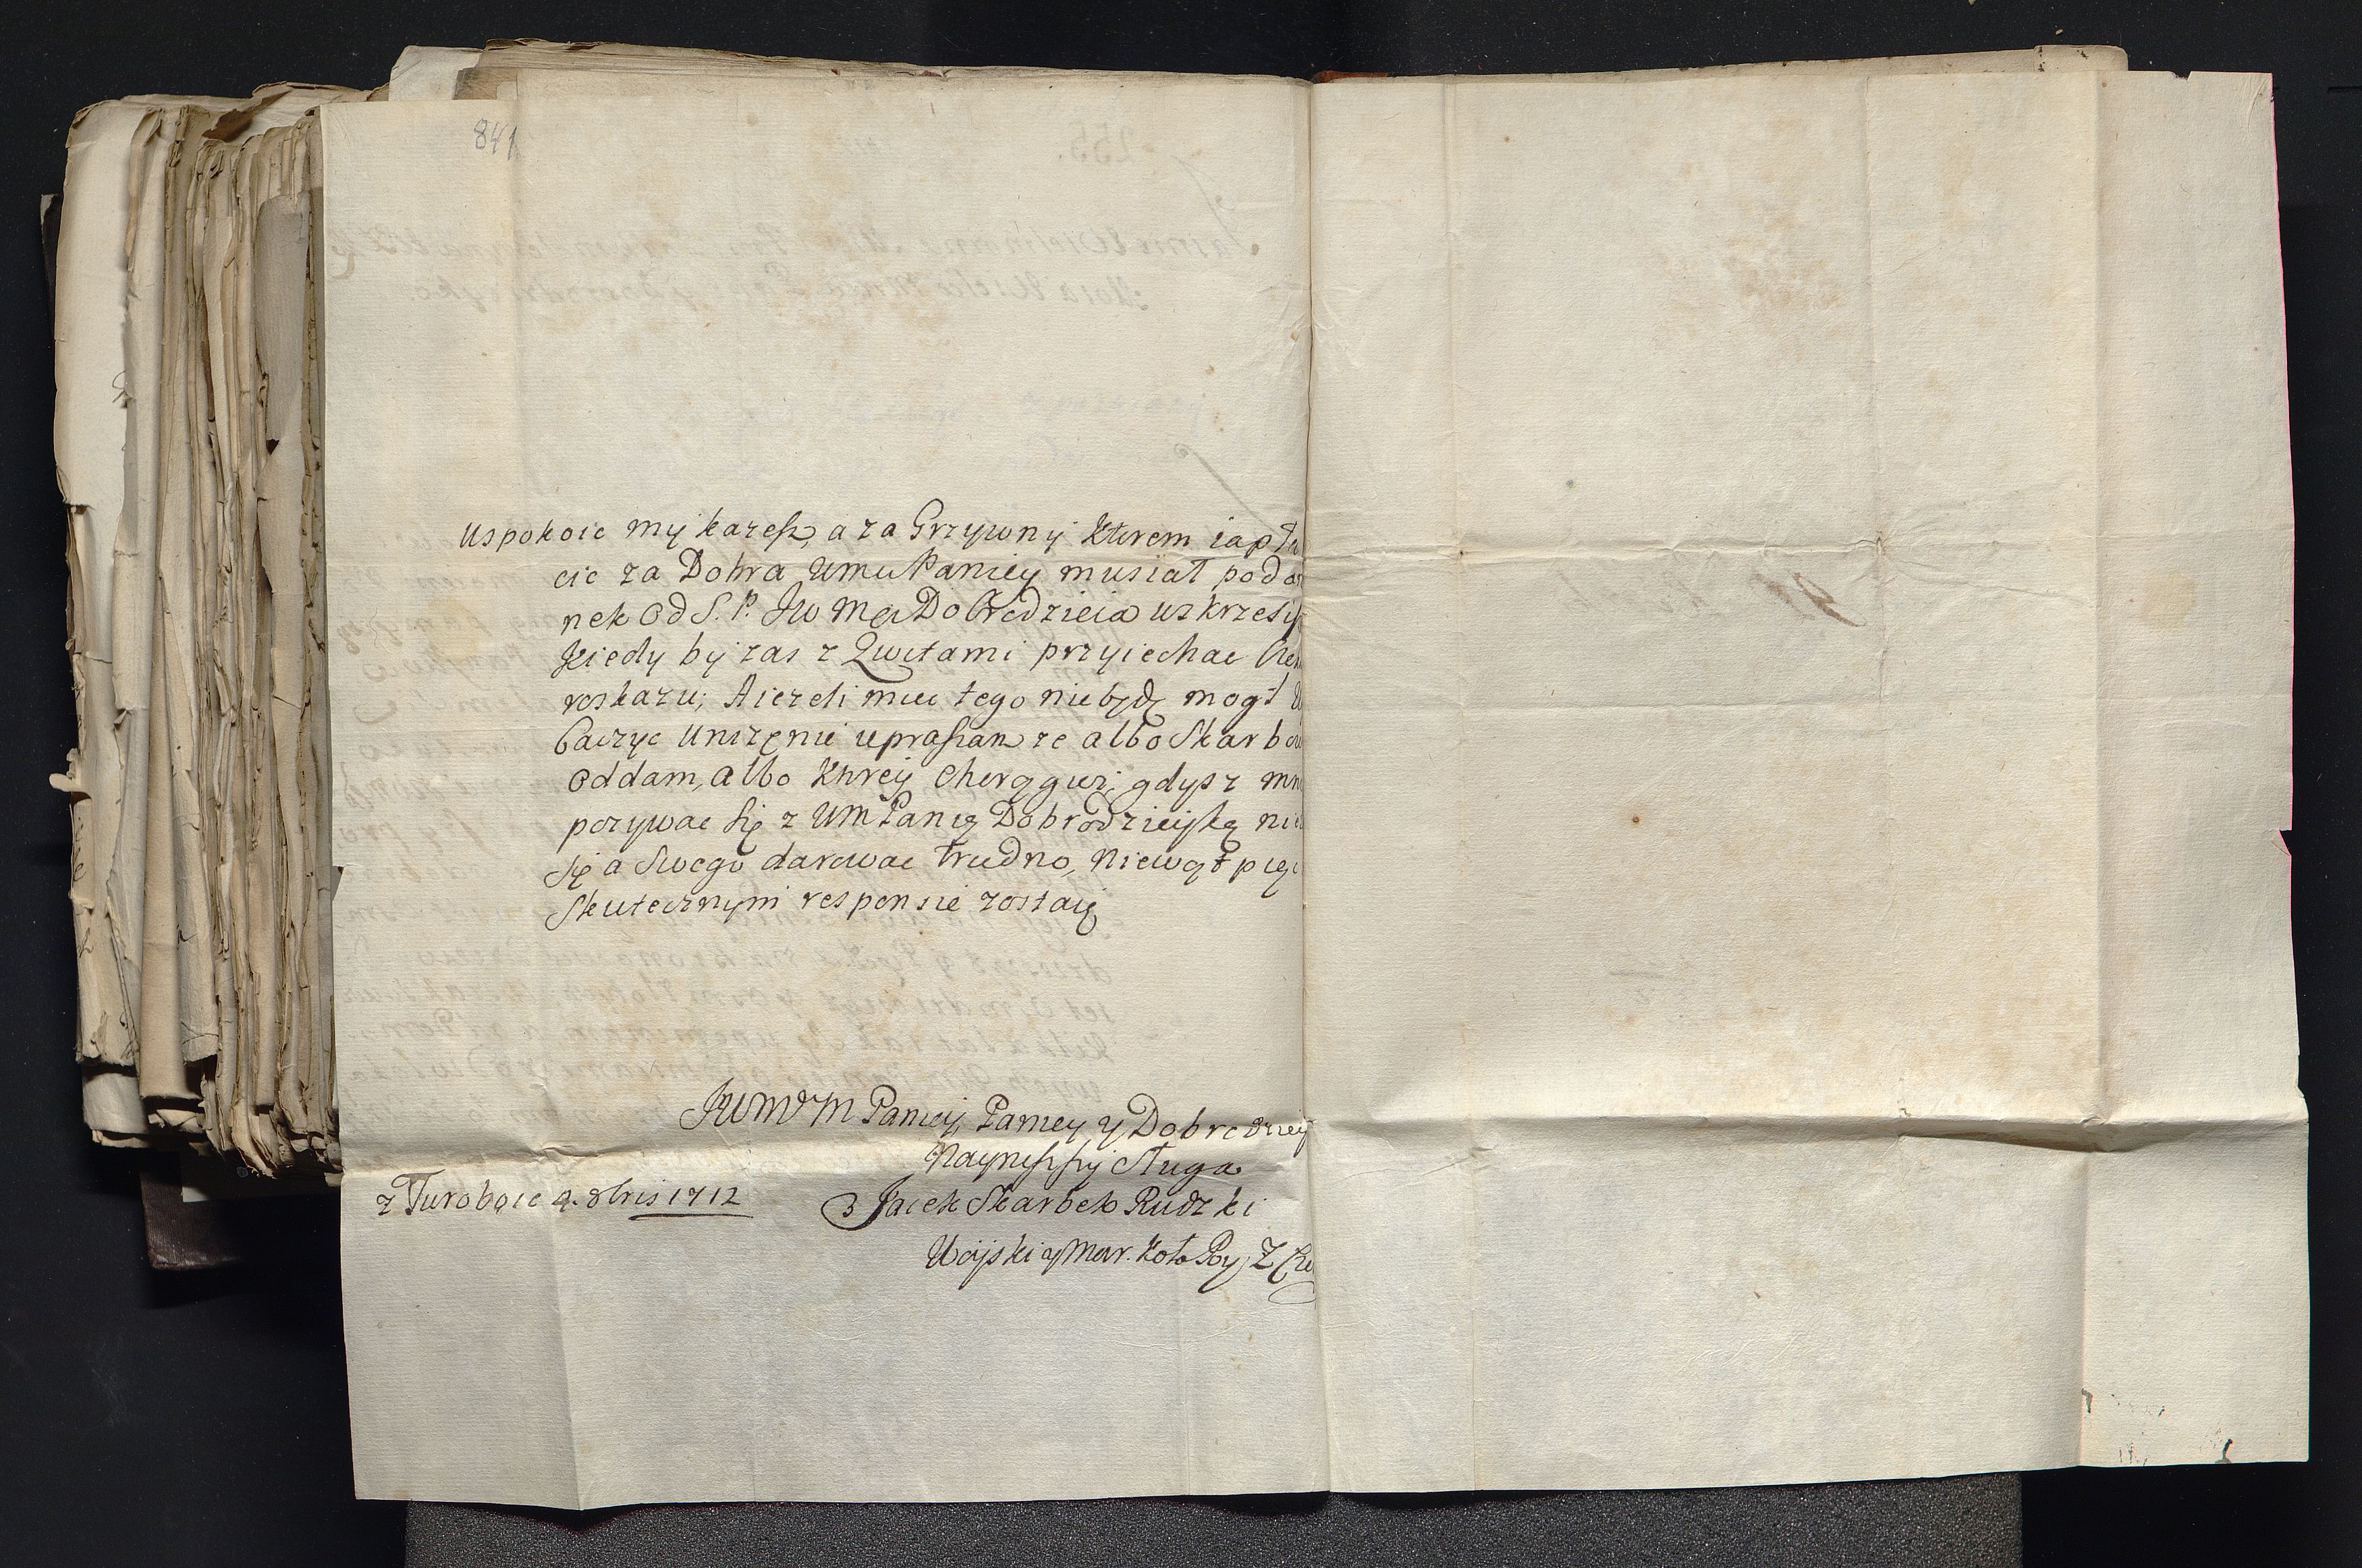 841
uspokoic my kazesz, a za Grzywny ktorem ia pła
cic za Dobra WMM Paniey musiał podar
nek od S. P. JW Mci Dobrodzieia wskrzesi
kiedy by zas z Qwitami przyiechac
roskazu; A iezeli mu tego niebędę mogł
baczyc Unizenie upraszam ze albo Skarbow
oddam, albo ktorey Chorągwi, gdysz mn
pozywac się z WM Panią Dobrodzieyką nie
się a Swego darowac trudno, Niewątpię
Skutecznym responsie zostaię
JWMWM Paniey, Paniey y Dobrodziey
Naynisszy Sługa
Jacek Skarbek Rudzki
z Turobąie 4. 8bris 1712
Woyski y Mar. Koła Ry, Z